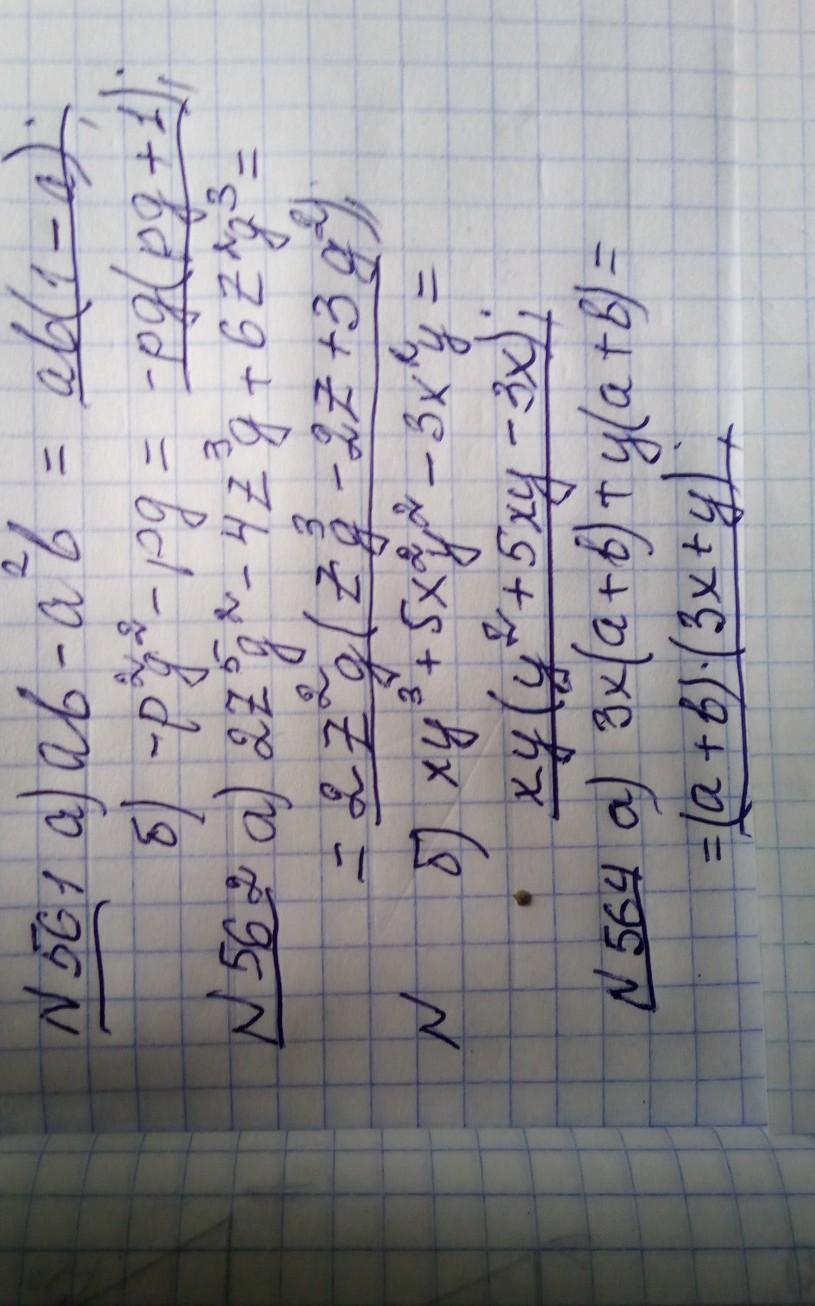 N561 а) ab - a²b = ab(1-a);
б) -p²g² - pg = -pg(pg+1);
N562 а) 2z⁵g² - 4z³g + 6z²g³ =
= 2z²g(z³g - 2z + 3g²)
б) xy³ + 5x²y² - 3x²y =
N
xy(y² + 5xy - 3x);
N564 а) 3x(a+b) + y(a+b) =
= (a+b)·(3x+y);